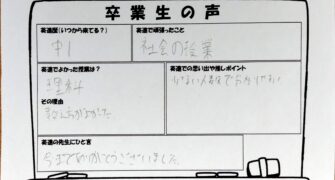 卒業生の声
英進歴(いつから来てる?)
中1
英進で頑張ったこと
社会の授業
英進でよかった授業は?
理科
その理由
英進での思い出や推しポイント
少ない人数で
英進の先生にひと言
今までありがとうございました。